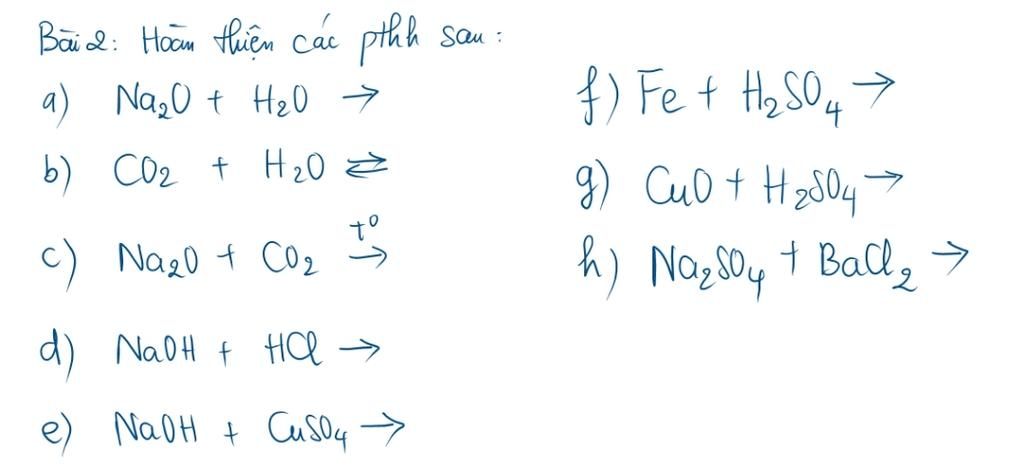 Bài 2: Hoàn thiện các pthh sau:
a) Na₂O + H₂O →
b) CO₂ + H₂O ⇄
c) Na₂O + CO₂ →(t°)
d) NaOH + HCl →
e) NaOH + CuSO₄ →
f) Fe + H₂SO₄ →
g) CuO + H₂SO₄ →
h) Na₂SO₄ + BaCl₂ →